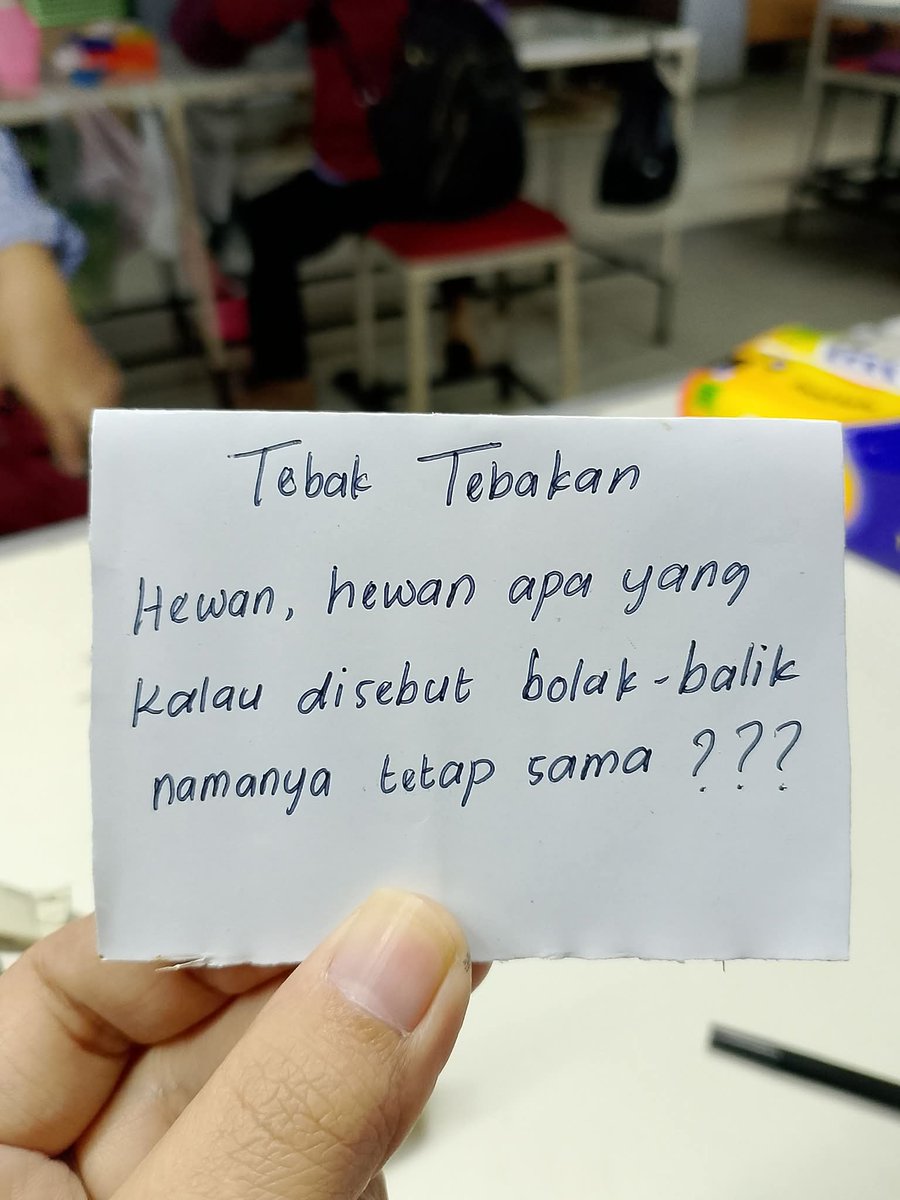 Tebak Tebakan
Hewan, hewan apa yang
kalau disebut bolak-balik
namanya tetap sama ???